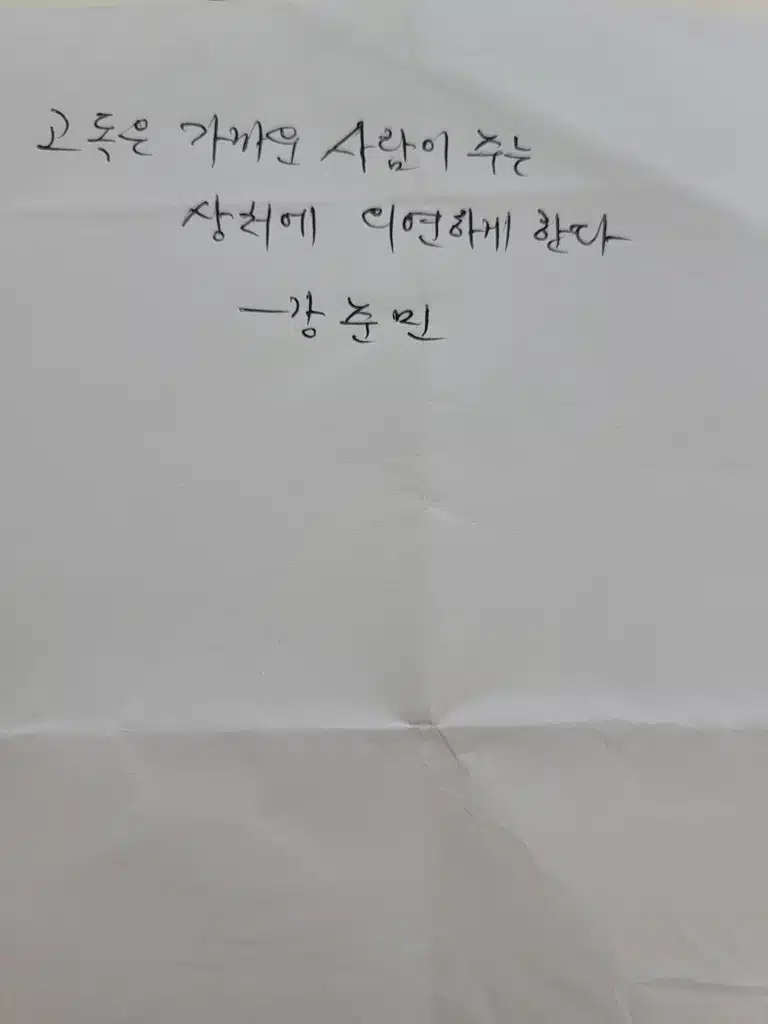 고독은 가까운 사람이 주는
상처에 의연하게 한다
-강준민